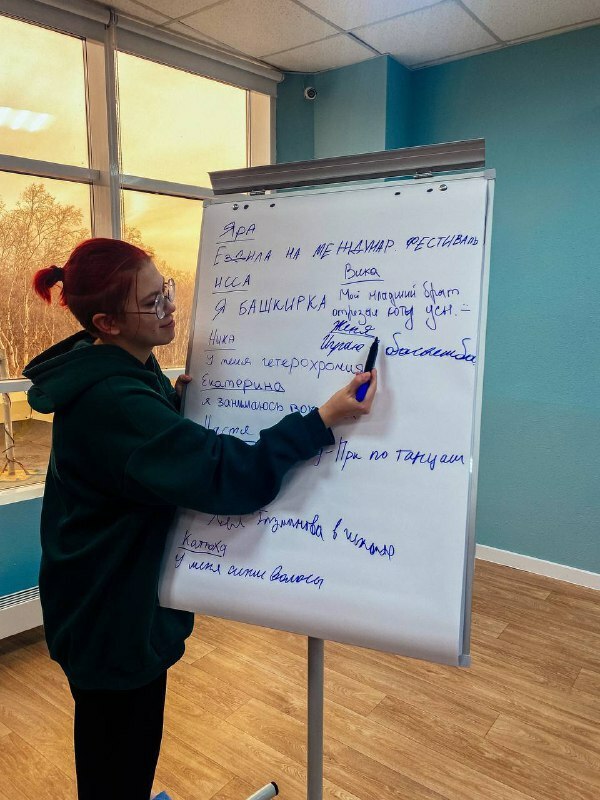 Яра
Ездила на междунар. фестиваль
Исса
Я башкирка
Вика
Мой младший брат
отрезал коту усы.
Женя
Играю
Ника
У меня гетерохромия
Екатерина
я занимаюсь
Настя
по танцам
Газманова в школе
У меня синие волосы